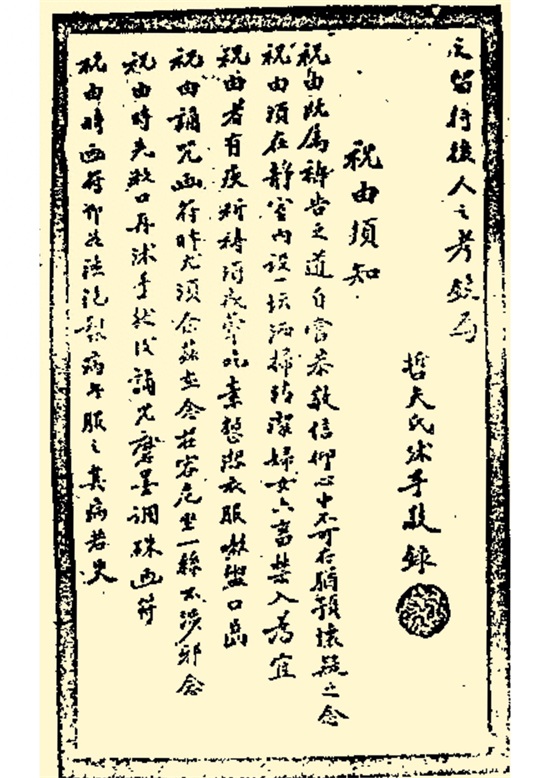 之留待後人之考鏡焉
哲夫氏沐手敬錄
祝由須知
祝由既属禱告之道自當恭敬信仰心中不可存顢頇懷疑之念
祝由須在靜室內設一坛洒掃精潔婦女六畜禁入為宜
祝由者有疾祈禱須戒葷吃素整潔衣服漱盥口齒
祝由誦咒画符時尤須念兹在念莊容危坐一絲不涉邪念
祝由時先漱口再沐手然後誦咒磨墨調硃画符
祝由時画符即成燒病者服之其病若失